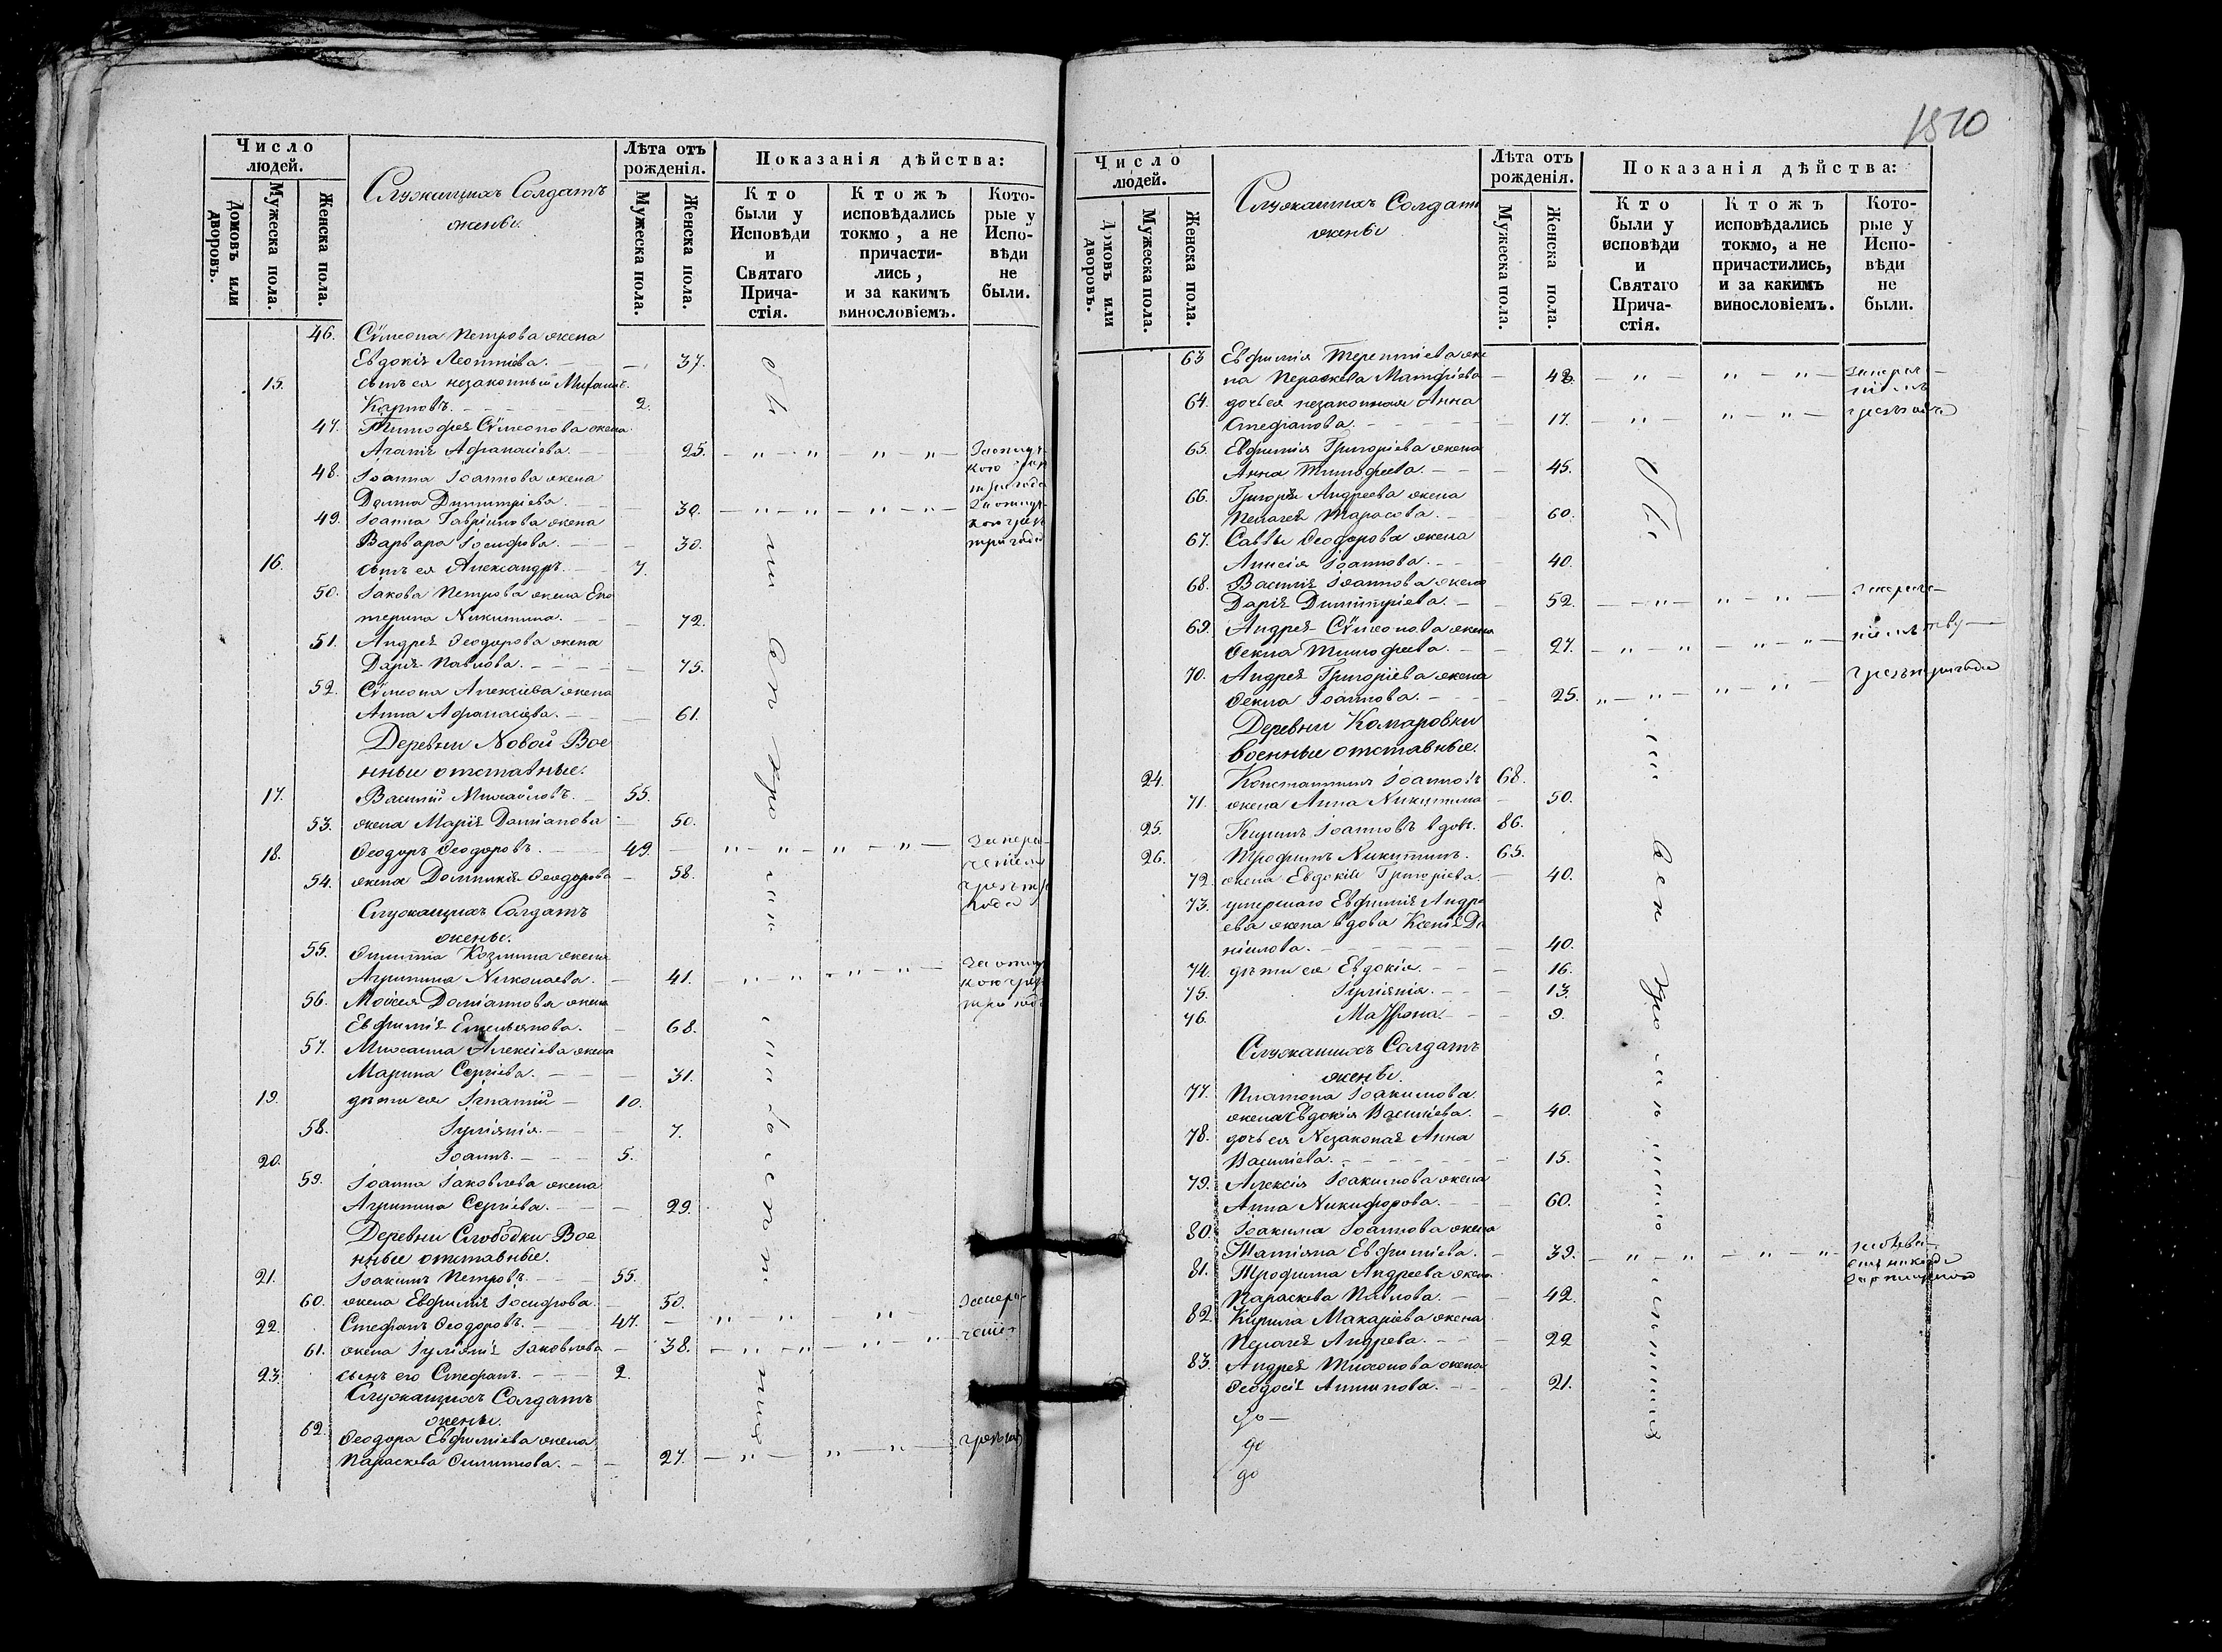 Число
людей.
Домовъ или дворовъ.
Мужеска пола.
Женска пола.
Служащихъ Солдатъ
жены.
Лѣта отъ
рожденія.
Мужеска пола.
Женска пола.
Показанія дѣйства:
Кто
были у
Исповѣди
и
Святаго
Прича-
стія.
Ктожъ
исповѣдались
токмо, а не
причасти-
лись,
и за какимъ
винословіемъ.
Кото-
рые у
Испо-
вѣди
не
были.
46. Сѵмеона Петрова жена
Евдокія Леонтіева. 37.
15. сынъ ея незаконный
Карповъ. 2.
47. Тимофея Сѵмеонова жена
Агапія Афанасіева. 25.
48. Іоанна Іоаннова жена
Домна Димитріева. 30.
49. Іоанна Гавріилова жена
Варвара Іосифова. 30.
16. сынъ ея Александръ. 7.
50. Іакова Петрова жена Ека
терина Никитина. 72.
51. Андрея Ѳеодорова жена
Дарія Павлова. 75.
52. Сѵмеона Алексіева жена
Анна Афанасіева. 61.
Деревни Новой Вое
нные отставные.
17. Василій Михайловъ. 55.
53. жена Марія Даміанова 50.
18. Ѳеодоръ Ѳеодоровъ. 49.
54. жена Домникія Ѳеодорова 58.
Служащихъ Солдатъ
жены.
55. Козмина жена
Агрипина Николаева. 41.
56. Моисея Доміанова жена
Евфимія Емельянова. 68.
57. Михаила Алексіева жена
Марина Сергіева. 31.
19. дѣти ея Игнатій 10.
58. Іуліанія. 7.
20. Іоаннъ. 5.
59. Іоанна Іаковлева жена
Агрипина Сергіева. 29.
Деревни Слободки Вое
нные отставные.
21. Іоакимъ Петровъ. 55.
60. жена Евфимія Іосифова. 50.
22. Стефанъ Ѳеодоровъ. 47.
61. жена Іуліанія Іаковлева 38.
23. сынъ его Стефанъ. 2.
Служащихъ Солдатъ
жены.
62. Ѳеодора Евфиміева жена
Параскева Филипова. 27.
1810
Число
людей.
Домовъ или дворовъ.
Мужеска пола.
Женска пола.
Служащихъ Солдатъ
жены
Лѣта отъ
рожденія.
Мужеска пола.
Женска пола.
Показанія дѣйства:
Кто
были у
исповѣди
и
Святаго
Прича-
стія.
Ктожъ
исповѣдались
токмо, а не
причастились,
и за какимъ
винословіемъ.
Кото-
рые у
Испо-
вѣди
не
были.
63 Евфимія Терентіева же
на Параскева Матфіева 43.
64. дочь ея незаконная Анна
Стефанова. 17.
65. Евфимія Григоріева жена
Анна Тимофеева. 45.
66. Григорія Андреева жена
Пелагея Тарасова. 60.
67. Саввы Ѳеодорова жена
Анисія Іоаннова. 40.
68. Василія Іоаннова жена
Дарія Димитріева. 52.
69. Андрея Сѵмеонова жена
Ѳекла Тимофеева. 27.
70. Андрея Григоріева жена
Ѳекла Іоаннова. 25.
Деревни Комаровки
военные отставные.
24. Константинъ Іоанновъ 68.
71. жена Анна Никитина 50.
25. Кирилъ Іоанновъ вдовъ. 86.
26. Трофимъ Никитинъ. 65.
72. жена Евдокія Григоріева. 40.
73. умершаго Евфимія Андре
ева жена вдова Ксенія Да
ніилова. 40.
74. дѣти ея Евдокія. 16.
75. Іуліанія. 13.
76. Матрона. 9.
Служащихъ Солдатъ
жены.
77. Платона Іоакимова
жена Евдокія Василіева. 40.
78. дочь ея Незаконая Анна
Василіева. 15.
79. Алексія Іоакимова жена
Анна Никифорова. 60.
80. Іоакима Іоаннова жена
Татіяна Евфиміева. 39.
81. Трофима Андреева жена
Параскева Павлова. 42.
82. Кирила Макаріева жена
Пелагея Андреева. 29
83. Андрея Тихонова жена
Ѳеодосія Антипова. 21.
до
до
до